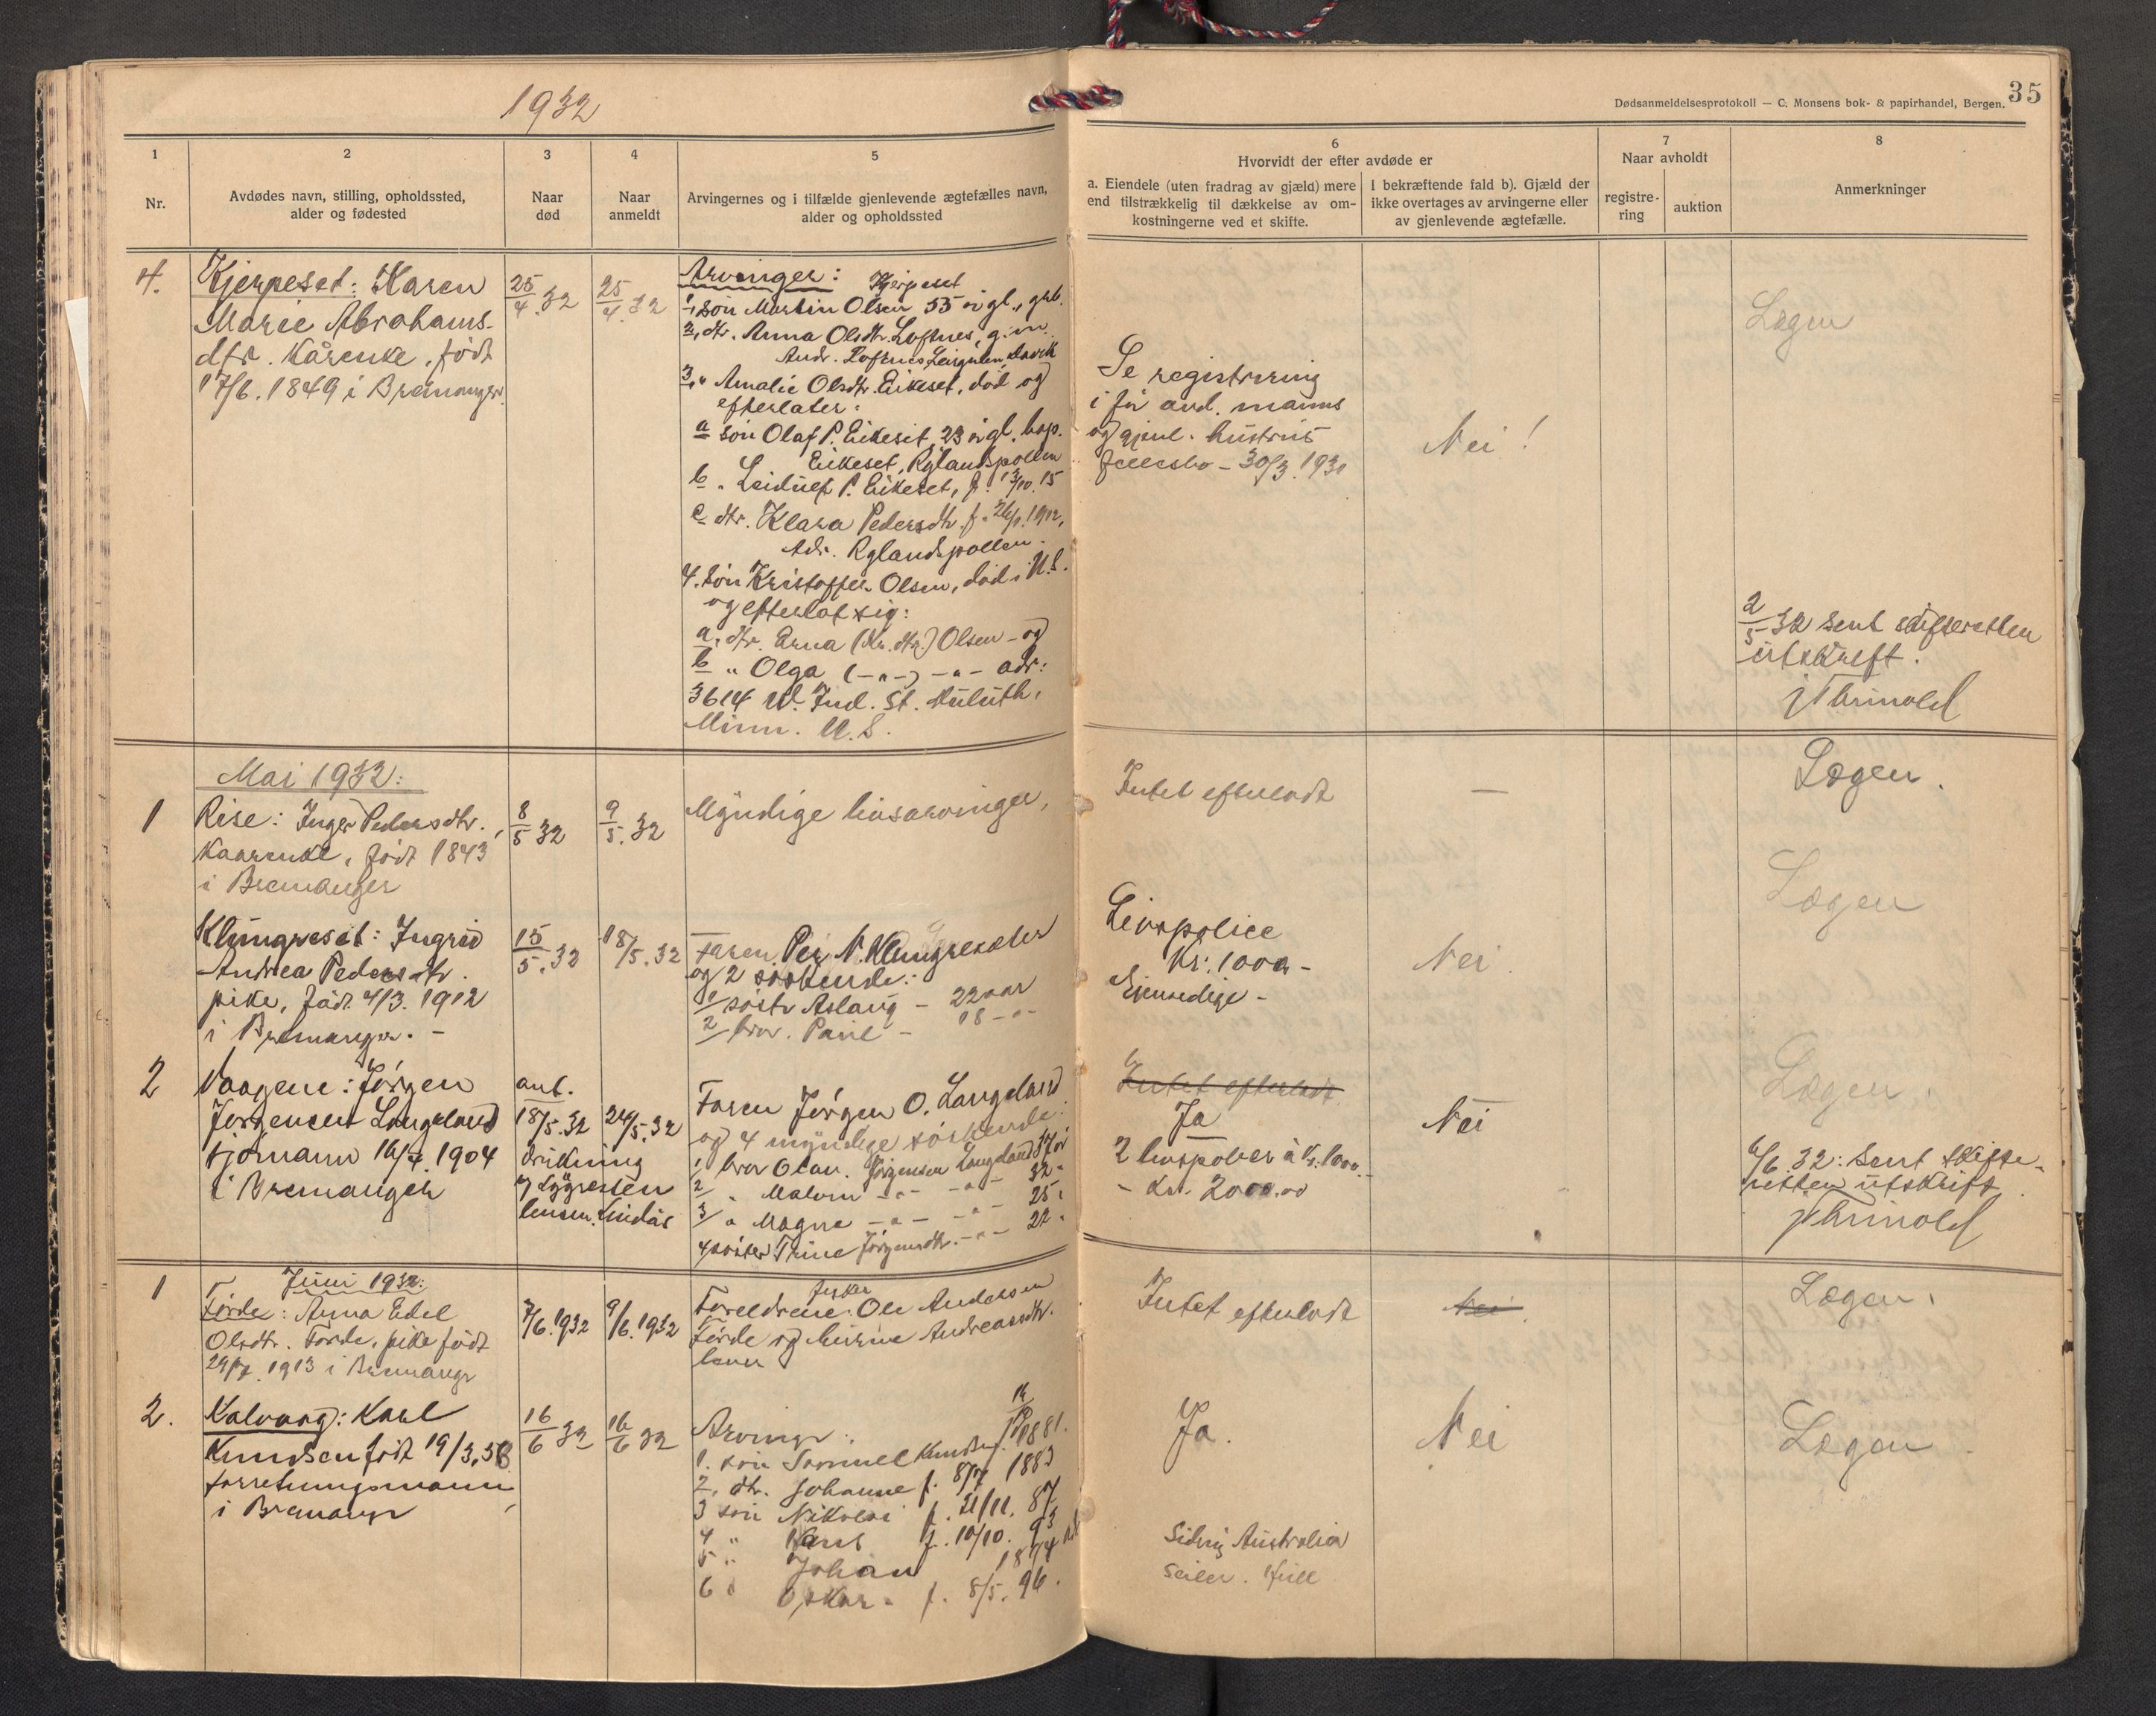 1932
35
Dødsanmeldelsesprotokoll — C. Monsens bok- & papirhandel, Bergen.
1
Nr.
2
Avdødes navn, stilling, opholdssted,
alder og fødested
3
Naar
død
4
Naar
anmeldt
5
Arvingernes og i tilfælde gjenlevende ægtefælles navn,
alder og opholdssted
6
Hvorvidt der efter avdøde er
a. Eiendele (uten fradrag av gjæld) mere
end tilstrækkelig til dækkelse av om-
kostningerne ved et skifte.
I bekræftende fald b). Gjæld der
ikke overtages av arvingerne eller
av gjenlevende ægtefælle.
7
Naar avholdt
registre-
ring
auktion
8
Anmerkninger
4.
Kjerpeset: Karen
Marie Abrahams-
dtr. Kårenke, født
17/6. 1849 i Bremanger
25/4. 32
25/4. 32
Arvinger: Kjerpeset
1, søn Martin Olsen 55 år gl., gkb.
2, dtr. Anna Olsdtr. Loftnes, g. m.
Andr. Loftnes, Leirgulen, Davik
3, " Amalie Olsdtr. Eikeset, død og
efterlater:
a søn Olaf P. Eikeset, 23 år gl. bop.
Eikeset, Rylandspollen
b " Leidulf P. Eikeset, f. 13/10. 15
c dtr. Klara Pedersdtr. f. 1912,
Adr. Rylandspollen.
4. søn Kristoffer Olsen, død i U.S.
og efterlot sig:
a, dtr. Erna (Kr. dtr.) Olsen - og
b " Olga (-"-) -"- adr:
3614 W. Ind. St. Duluth,
Minn. U.S.
Se registrering
i før avd. manns
og gjenl. hustrus
fellesbo - 30/3. 1931
Nei!
Lægen
2/5 32 sent skifteretten
utskrift.
Mai 1932:
1
Rise: Inger Pedersdtr.,
Kaarenke, født 1843
i Bremanger
8/5 32
9/5. 32
Myndige livsarvinger,
Intet efterladt
—
Lægen.
Klungreset: Ingrid
Andrea Pedersdtr.
pike, født 4/3. 1912
i Bremanger. -
15/5. 32
18/5. 32
Faren Per N. Klungreseter
og 2 søskende:
1/ søster Aslaug - 22 aar
2/ bror. Paul - 18 -"-
Livspolice
Kr. 1000 -
Nei.
Lægen
2
Vaagene: Jørgen
Jørgensen Langeland
sjømann 16/4. 1904
i Bremanger
ant.
18/5. 32
drukning
24/5. 32
Faren Jørgen O. Langeland
og 4 myndige søskende:
1/ bror Olav. Jørgensen Langeland 37 år
2/ " Malvin -"- -"- 32 "
3/ " Magne -"- -"- 25 "
4 søster Trine Jørgensdtr. -"- 22 "
Intet efterladt
Ja
2 livspolicer à kr. 1000.-
- Kr. 2000.00
Nei
Lægen.
6/6. 32: Sent skifte-
retten utskrift.
1
Juni 1932:
Førde: Anna Edel
Olsdtr. Førde, pike født
1913 i Bremanger
7/6. 1932
9/6. 1932
Foreldrene: Ole Andersen
Førde og hustru Andreasdtr.
lever
Intet efterladt
Nei.
Lægen.
2.
Kalvaag: Karl
Knudsen født 19/3. 58
forretningsmann
i Bremanger
16/6 32
16/6 32
Arvinger:
1. søn Samuel Knudsen f. 1881.
2, dtr. Johanne f. 8/7 1883
3 søn Nikolai f. 21/11. 87
4 " Karl f. 10/10. 93
5 " Johan 1874
6 " Oskar f. 8/5. 96.
Ja.
Nei
Lægen.
Sidny Australia